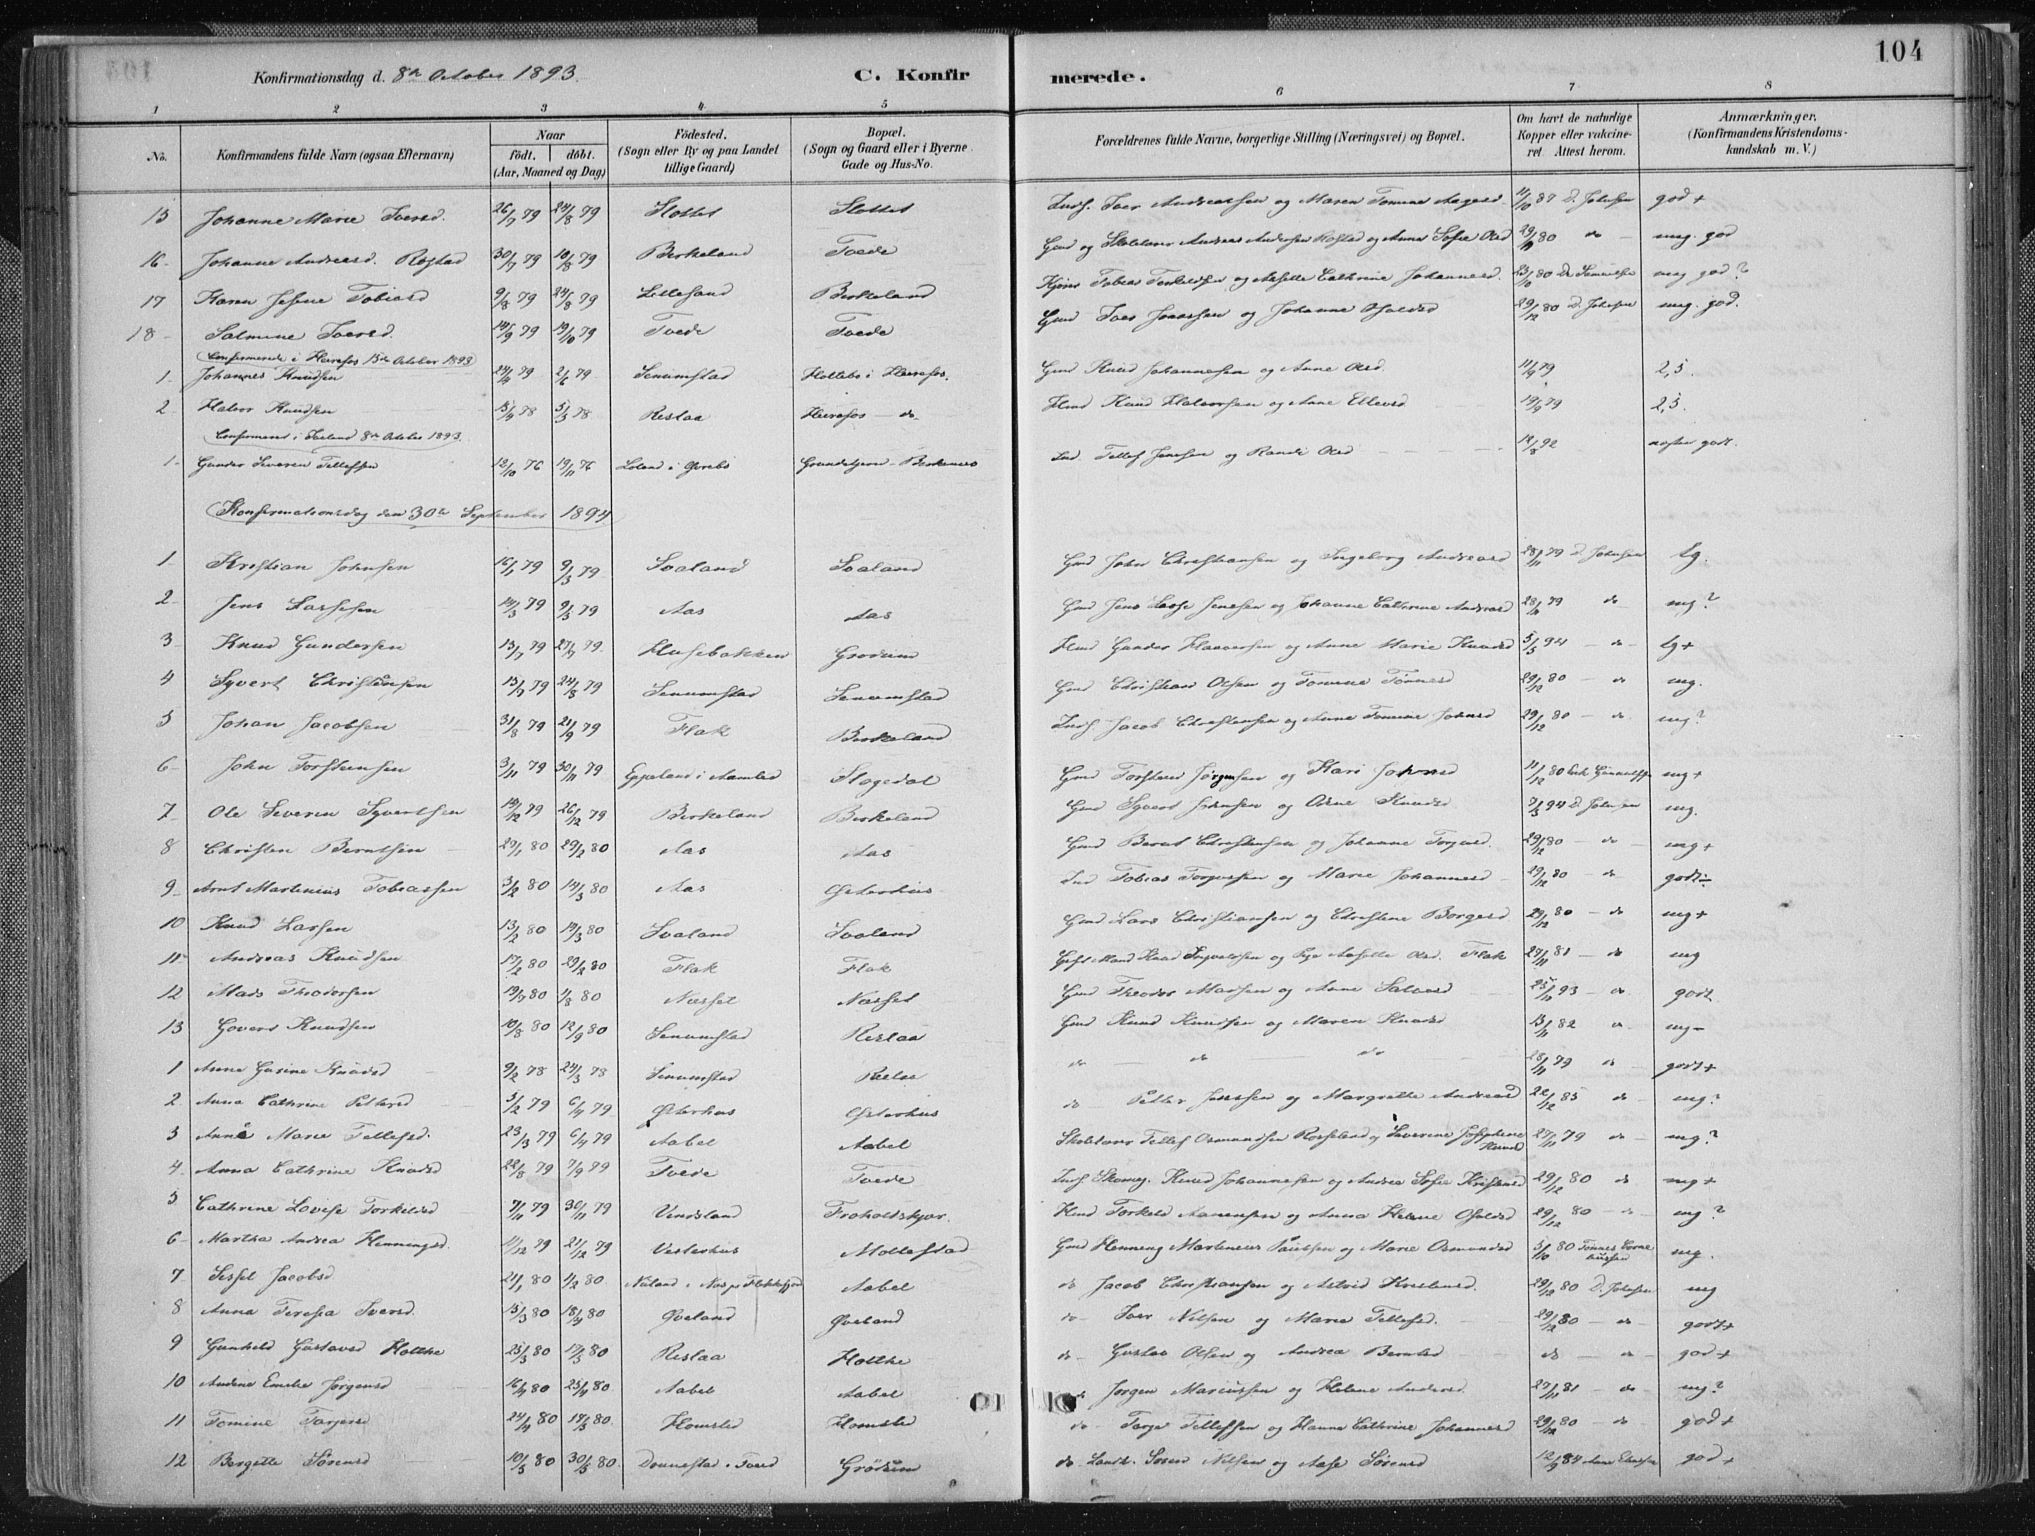 104
Konfirmationsdag d. 8de October 1893. C. Konfirmerede.
1 2 3 4 5 6 7 8
No. Konfirmandens fulde Navn (ogsaa Efternavn) Naar födt. döbt. (Aar, Maaned og Dag) Födested. (Sogn eller By og paa Landet tillige Gaard) Bopæl. (Sogn og Gaard eller i Byerne Gade og Hus-No. Forældrenes fulde Navne, borgerlige Stilling (Næringsvei) og Bopæl. Om havt de naturlige Kopper eller vakcineret. Attest herom. Anmærkninger. (Konfirmandens Kristendomskundskab m. V.)
15 Johanne Marie Iversd. 26/7 79 24/8 79 Slottet Slottet Indf. Iver Andreassen og Maren Tomine Aagesd. 11/10 87 D. Johnsen god+
16 Johanne Andreasd. Rostad 30/7 79 10/8 79 Birkeland Tvede Gmd og Skolelærer Andreas Andersen Rostad og Anna Sofie Olsd 80 do meg. god
17 Karen Tobiasd 9/8 79 24/8 79 Lillesand Birkeland Tobias Torkeldsen og Cathrine Johannesd. 80 meg god?
18 Salmine Iversd. 14/9 79 19/10 79 Tvede Tvede Gmd Iver Jonassen og Johanne Osuldsd 29/12 80 D. Johnsen meg. god.
Confirmerede i Herefos 15de October 1893
1 Johannes Knudsen 79 2/6 79 Senumstad Hollebo i Herefos. Gmd Knud Johannesen og Anne Olsd. 11/9 79 2,5.
2 Halvor Knudsen 78 5/5 78 Reslaa Herefos - do Hmd Knud Halvorsen og Anne Ellevsd 19/9 79 2,5.
Confirmeret i Iveland 8de October 1893.
1 Gunder Severin Tellefsen 12/10 76 19/11 76 Loland i Øvrebø Birkenes Ind. Tellef Jensen og Randi Olsd 18/8 92 næsten godt.
Konfirmationsdag den 30te September 1894
1 Kristian Johnsen 16/1 79 9/3 79 Svaland Svaland Gmd John Christiansen og Ingeborg Andreasd 28/11 79 D. Johnsen tg.
2 Jens Larssen 14/3 79 9/5 79 Aas Aas Gmd Jens Lasse Jensen og Johanne Cathrine Andreasd 28/11 79 do mg?
3 Knud Gundersen 13/7 79 27/7 79 Husebakken Grødum Hmd Gunder Haavorsen og Anne Marie Knudsd 5/5 94 do tg+
4 Syvert Christensen 15/7 79 24/8 79 Senumstad Senumstad Gmd Christian Olsen og Tomine Tønnesd 29/12 80 do mg.
5 Johan Jacobsen 31/8 79 21/9 79 Flak Birkeland Indf. Jacob Christensen og Anne Tomine Johnsd 29/12 80 do mg?
6 John Torsteinsen 3/11 79 30/11 79 Eppeland i Aamlid Stogedal Gmd Torstein Jørgensen og Kari Johnsd 11/12 80 mg+
7 Ole Severin Syvertsen 14/12 79 26/12 79 Birkeland Birkeland Gmd Syvert Jensen og Osine Knudsd 7/3 94 D. Johnsen mg.
8 Christen Berntsen 27/1 80 29/2 80 Aas Aas Gmd Bernt Christensen og Johanne Torjusd. 29/12 80 do mg+
9 Arnt Martinius Tobiassen 3/2 80 14/3 80 Aas Østerhus Ind Tobias Torjussen og Marie Johannesd 29/12 80 do godt-
10 Knud Larsen 13/2 80 14/3 80 Svaland Svaland Gmd Lars Christiansen og Christine Børgesd 29/12 80 do mg+
11 Andreas Knudsen 17/2 80 29/2 80 Flak Flak Gift Mand Knud Ingvaldsen og Pige Aasille Olsd. Flak 27/11 81 do mg
12 Mads Theodorsen 19/7 80 1/8 80 Næsset Næsset Gmd Theodor Madsen og Anne Salvesd 25/11 93 do godt
13 Govert Knudsen 10/8 80 12/9 80 Senumstad Reslaa Gmd Knud Knudsen og Maren Knudsd 13/11 82 do mg-
1 Anne Gurine Knudsd 9/2 78 24/3 78 Senumstad Reslaa do do do 28/11 79 do godt+
2 Anna Cathrine Pettersd 3/2 79 6/4 79 Østerhus Østerhus do Petter Jensen og Margrethe Andreasd 22/12 85 do mg?
3 Anne Marie Tellefsd. 23/3 79 6/4 79 Aabel Aabel Skolelærer Tellef Osmundsen Rosseland og Severine Josephine Knudsd 27/11 79 do mg?
4 Anna Cathrine Knudsd 22/8 79 7/9 79 Tvede Tvede Indf Skomg. Knud Johannesen og Andrea Sofie Kristensd 29/12 80 do mg+
5 Cathrine Lovise Torkelsd 7/11 79 30/11 79 Vindsland Froholdskjær. Hmd Torkeld Aanensen og Anna Helene Osuldsd 29/12 80 do mg?
6 Martha Andrea Henningsd. 11/12 79 21/12 79 Vesterhus Mollestad Gmd Henning Martinius Paulsen og Marie Osmundsd 5/10 80 Tønnes mg.
7 Sissel Jacobsd 21/1 80 1/2 80 Aabel do Jacob Christiansen og Astrid Kristensd. 29/12 80 D. Johnsen mg
8 Anna Teresia Iversd. 15/3 80 18/4 80 Øveland Øveland do Iver Nilsen og Marie Tellefsd. 29/12 80 do godt+
9 Gunhild Gustavsd Holtke 25/3 80 17/5 80 Reslaa Holtke do Gustav Olsen og Andrea Berntsd do do god+
10 Andine Emilie Jørgensd 16/4 80 25/4 80 Aabel Aabel do Jørgen Mariussen og Helene Andersd. 27/11 81 do mg?
11 Tomine Torjesd 24/4 80 17/5 80 Homsted Homsted do Torje Tellefsen og Hanne Cathrine Johannesd 29/12 80 do god+
12 Bergitte Sørensd 10/5 80 30/5 80 Dønnestad i Tveid Grødum do Søren Nilsen og Aase Sørensd 12/9 84 god+